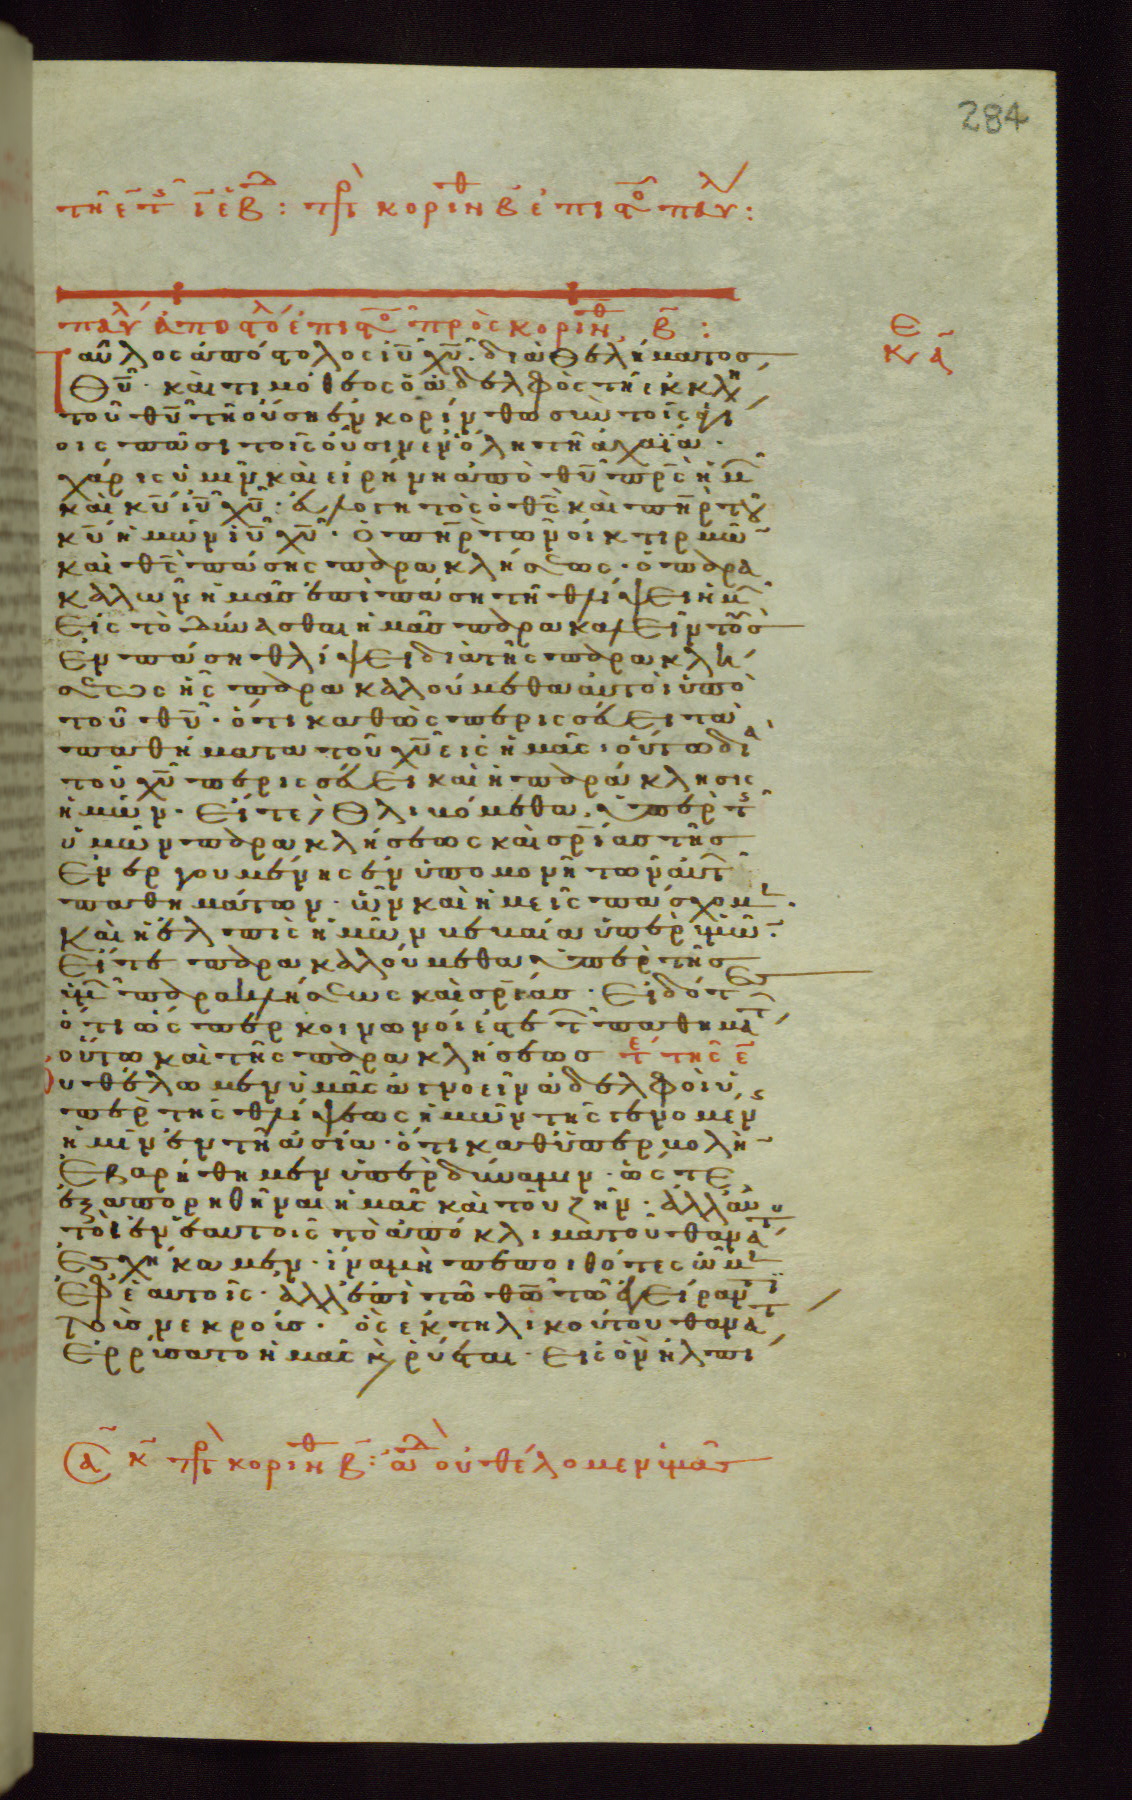 284
τῆ ε̄ τς ιε ἑβδ : πρ κορινθ β̄ ἐπιστο παυλ :
παυλ ἀποστόλ ἐπιστο πρὸς κορινθ, β̄ :
Παῦλος ἀπόστολος ἰῦ χῦ. διὰ θελήματος
θῦ · καὶ τιμόθεος ὁ ἀδελφὸς τῆ ἐκκλη
τοῦ θῦ τῆ οὔση ἐν κορίνθω σὺν τοῖς ἁγί
οις πᾶσι τοῖς οὖσιν ἐν ὅλη τῆ ἀχαΐα ·
χάρις ὑμῖν καὶ εἰρήνη ἀπὸ θῦ πρς ἡμ
καὶ κῦ ἰῦ χῦ · εὐλογητὸς ὁ θς καὶ πηρ τοῦ
κῦ ἡμῶν ἰῦ χῦ · ὁ πηρ τῶν οἰκτιρμῶ
καὶ θς πάσης παρακλήσεως · ὁ παρα
καλῶν ἡμᾶς ἐπὶ πάση τῆ θλίψει ἡμ
εἰς τὸ δύνασθαι ἡμᾶς παρακαλεῖν τοὺς
ἐν πάση θλίψει διὰ τῆς παρακλή
σεως ἧς παρακαλούμεθα αὐτοὶ ὑπὸ
τοῦ θῦ · ὅτι καθὼς περισσεύει τὰ
παθήματα τοῦ χῦ εἰς ἡμᾶς · οὕτω διὰ
τοῦ χῦ περισσεύει καὶ ἡ παράκλησις
ἡμῶν · εἴτε θλιβόμεθα, ὑπὲρ τς
ὑμῶν παρακλήσεως καὶ σρίας τῆς
ἐνεργουμένης ἐν ὑπομονῆ τῶν αὐτ
παθημάτων · ὧν καὶ ἡμεῖς πάσχομ ·
καὶ ἡ ἐλπὶς ἡμῶν βεβαία ὑπὲρ ὑμῶ ·
εἴτε παρακαλούμεθα ὑπὲρ τῆς
ὑμ παρακλήσεως καὶ σρίας · εἰδότες
ὅτι ὥσπερ κοινωνοί ἐστε τ παθημάτ
οὕτω καὶ τῆς παρακλήσεως τε τῆς ε̄
Οὐ θέλωμεν ὑμᾶς ἀγνοεῖν ἀδελφοὶ ὑ
πὲρ τῆς θλίψεως ἡμῶν τῆς γενομενς
ἡμῖν ἐν τῆ ἀσία · ὅτι καθ ὑπερβολὴ
ἐβαρήθημεν ὑπὲρ δύναμιν · ὥστε
ἐξαπορηθῆναι ἡμᾶς καὶ τοῦ ζῆν · ἀλλ αὐ
τοὶ ἐν ἑαυτοῖς τὸ ἀπόκριμα τοῦ θανάτου
ἐσχήκαμεν · ἵνα μὴ πεποιθότες ὦμ
ἐφ ἑαυτοῖς · ἀλλ ἐπὶ τῶ θῶ τῶ ἐγείραντι
τοὺς νεκρούς · ὃς ἐκ τηλικούτου θανάτ
ἐρρύσατο ἡμᾶς κ ῥύσται · εἰς ὃν ἠλπί
Ε
κυ ᾱ
ᾱ κ πρ κορινθ β̄ : ἀδλ οὐ θέλομεν ὑμᾶς